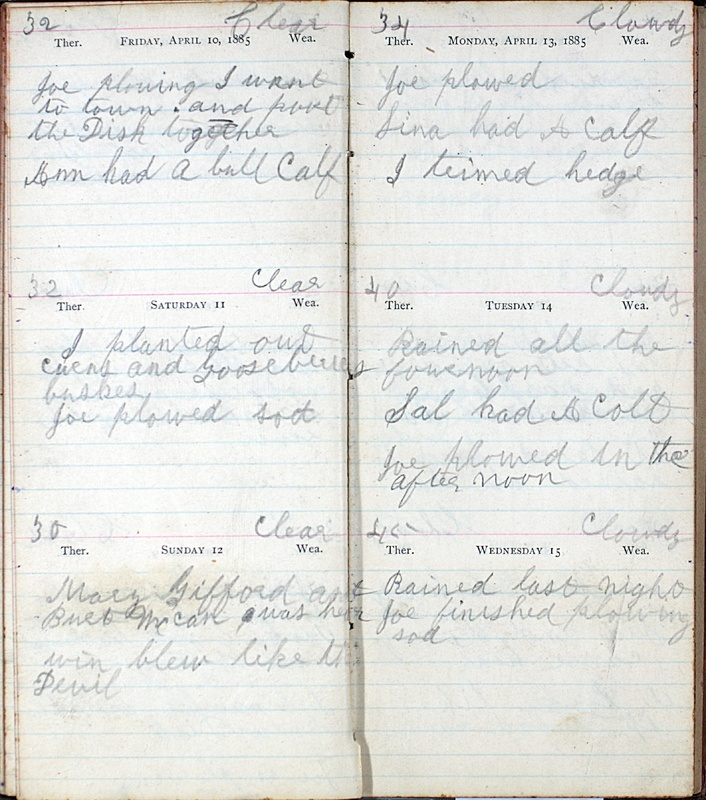 32 Clear
Ther. FRIDAY, APRIL 10, 1885 Wea.
Joe plowing I want
to town and put
the Disk together
Ann had a bull Calf
32 Clear
Ther. SATURDAY 11 Wea.
I planted out
and gooseberries
bushes
Joe plowed sod
30 Clear
Ther. SUNDAY 12 Wea.
Mary Gifford and
Burt McCan was her
win blew like the
Devil
34 Cloudy
Ther. MONDAY, APRIL 13, 1885 Wea.
Joe plowed
Lina had A Calf
I trimed hedge
40 Cloudy
Ther. TUESDAY 14 Wea.
Rained all the
fournoon
Sal had A Colt
Joe plowed in the
after noon
45 Cloudy
Ther. WEDNESDAY 15 Wea.
Rained last night
Joe finished plowing
sod